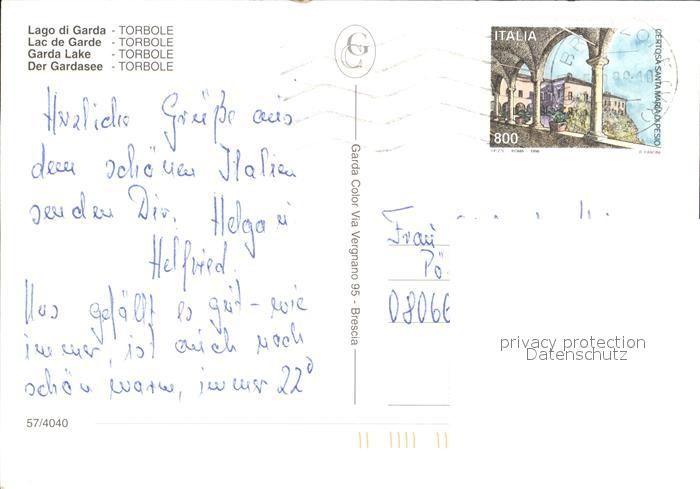 Lago di Garda - TORBOLE
Lac de Garde - TORBOLE
Garda Lake - TORBOLE
Der Gardasee - TORBOLE
GC
ITALIA
CERTOSA SANTA MARIA DI PESIO
800
Herzliche Grüße aus
dem schönen Italien
senden Dir. Helga u
Helfried.
Uns gefällt es gut - wie
immer, ist auch noch
schön warm, immer 22°
Garda Color Via Vergnano 95 - Brescia
Frau
08066
privacy protection
Datenschutz
57/4040